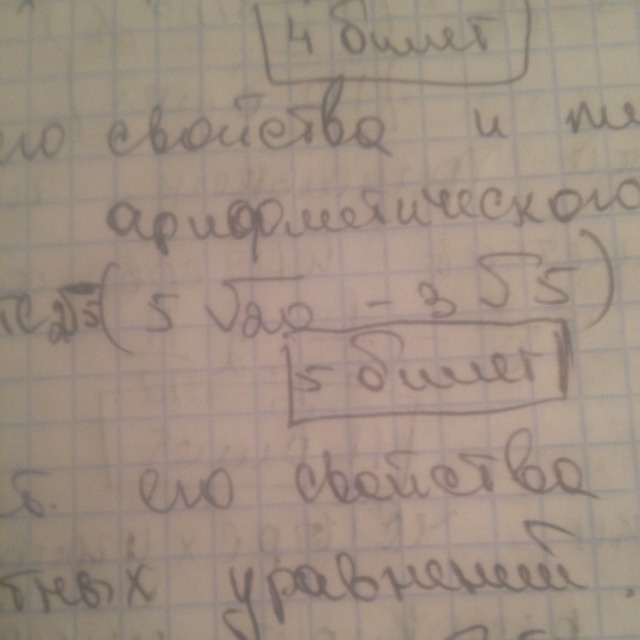 4 билет
его свойства и
арифметического
2√5 (5 √20 - 3 √5)
5 билет
его свойства
уравнений